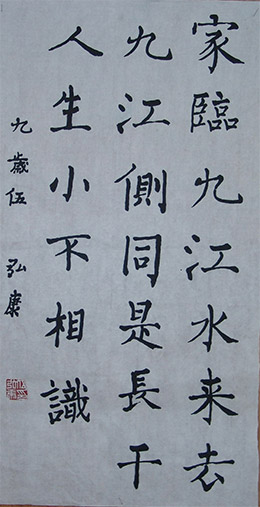 家臨九江水来去
九江側同是長干
人生小不相識
九歲伍弘康